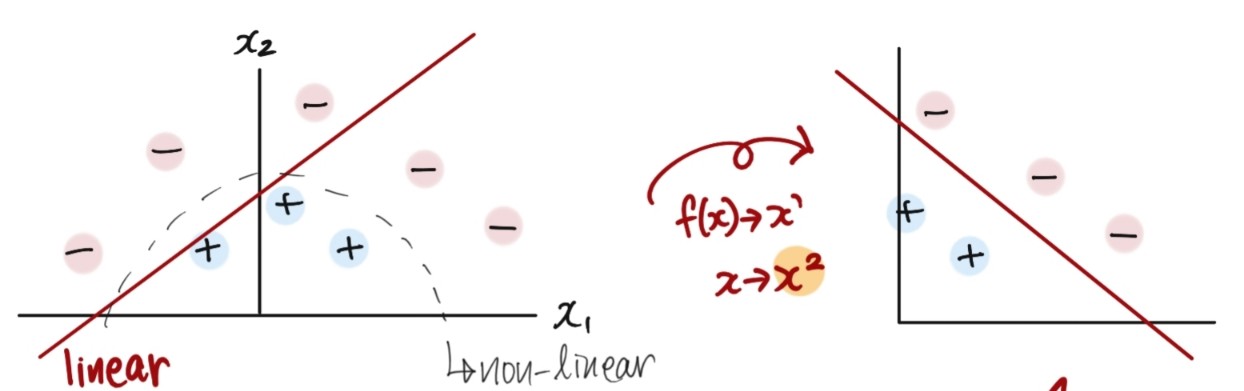 x₂
x₁
linear
↳non-linear
f(x)→x'
x→x²
− − − − −
+ + +
− − −
+ +